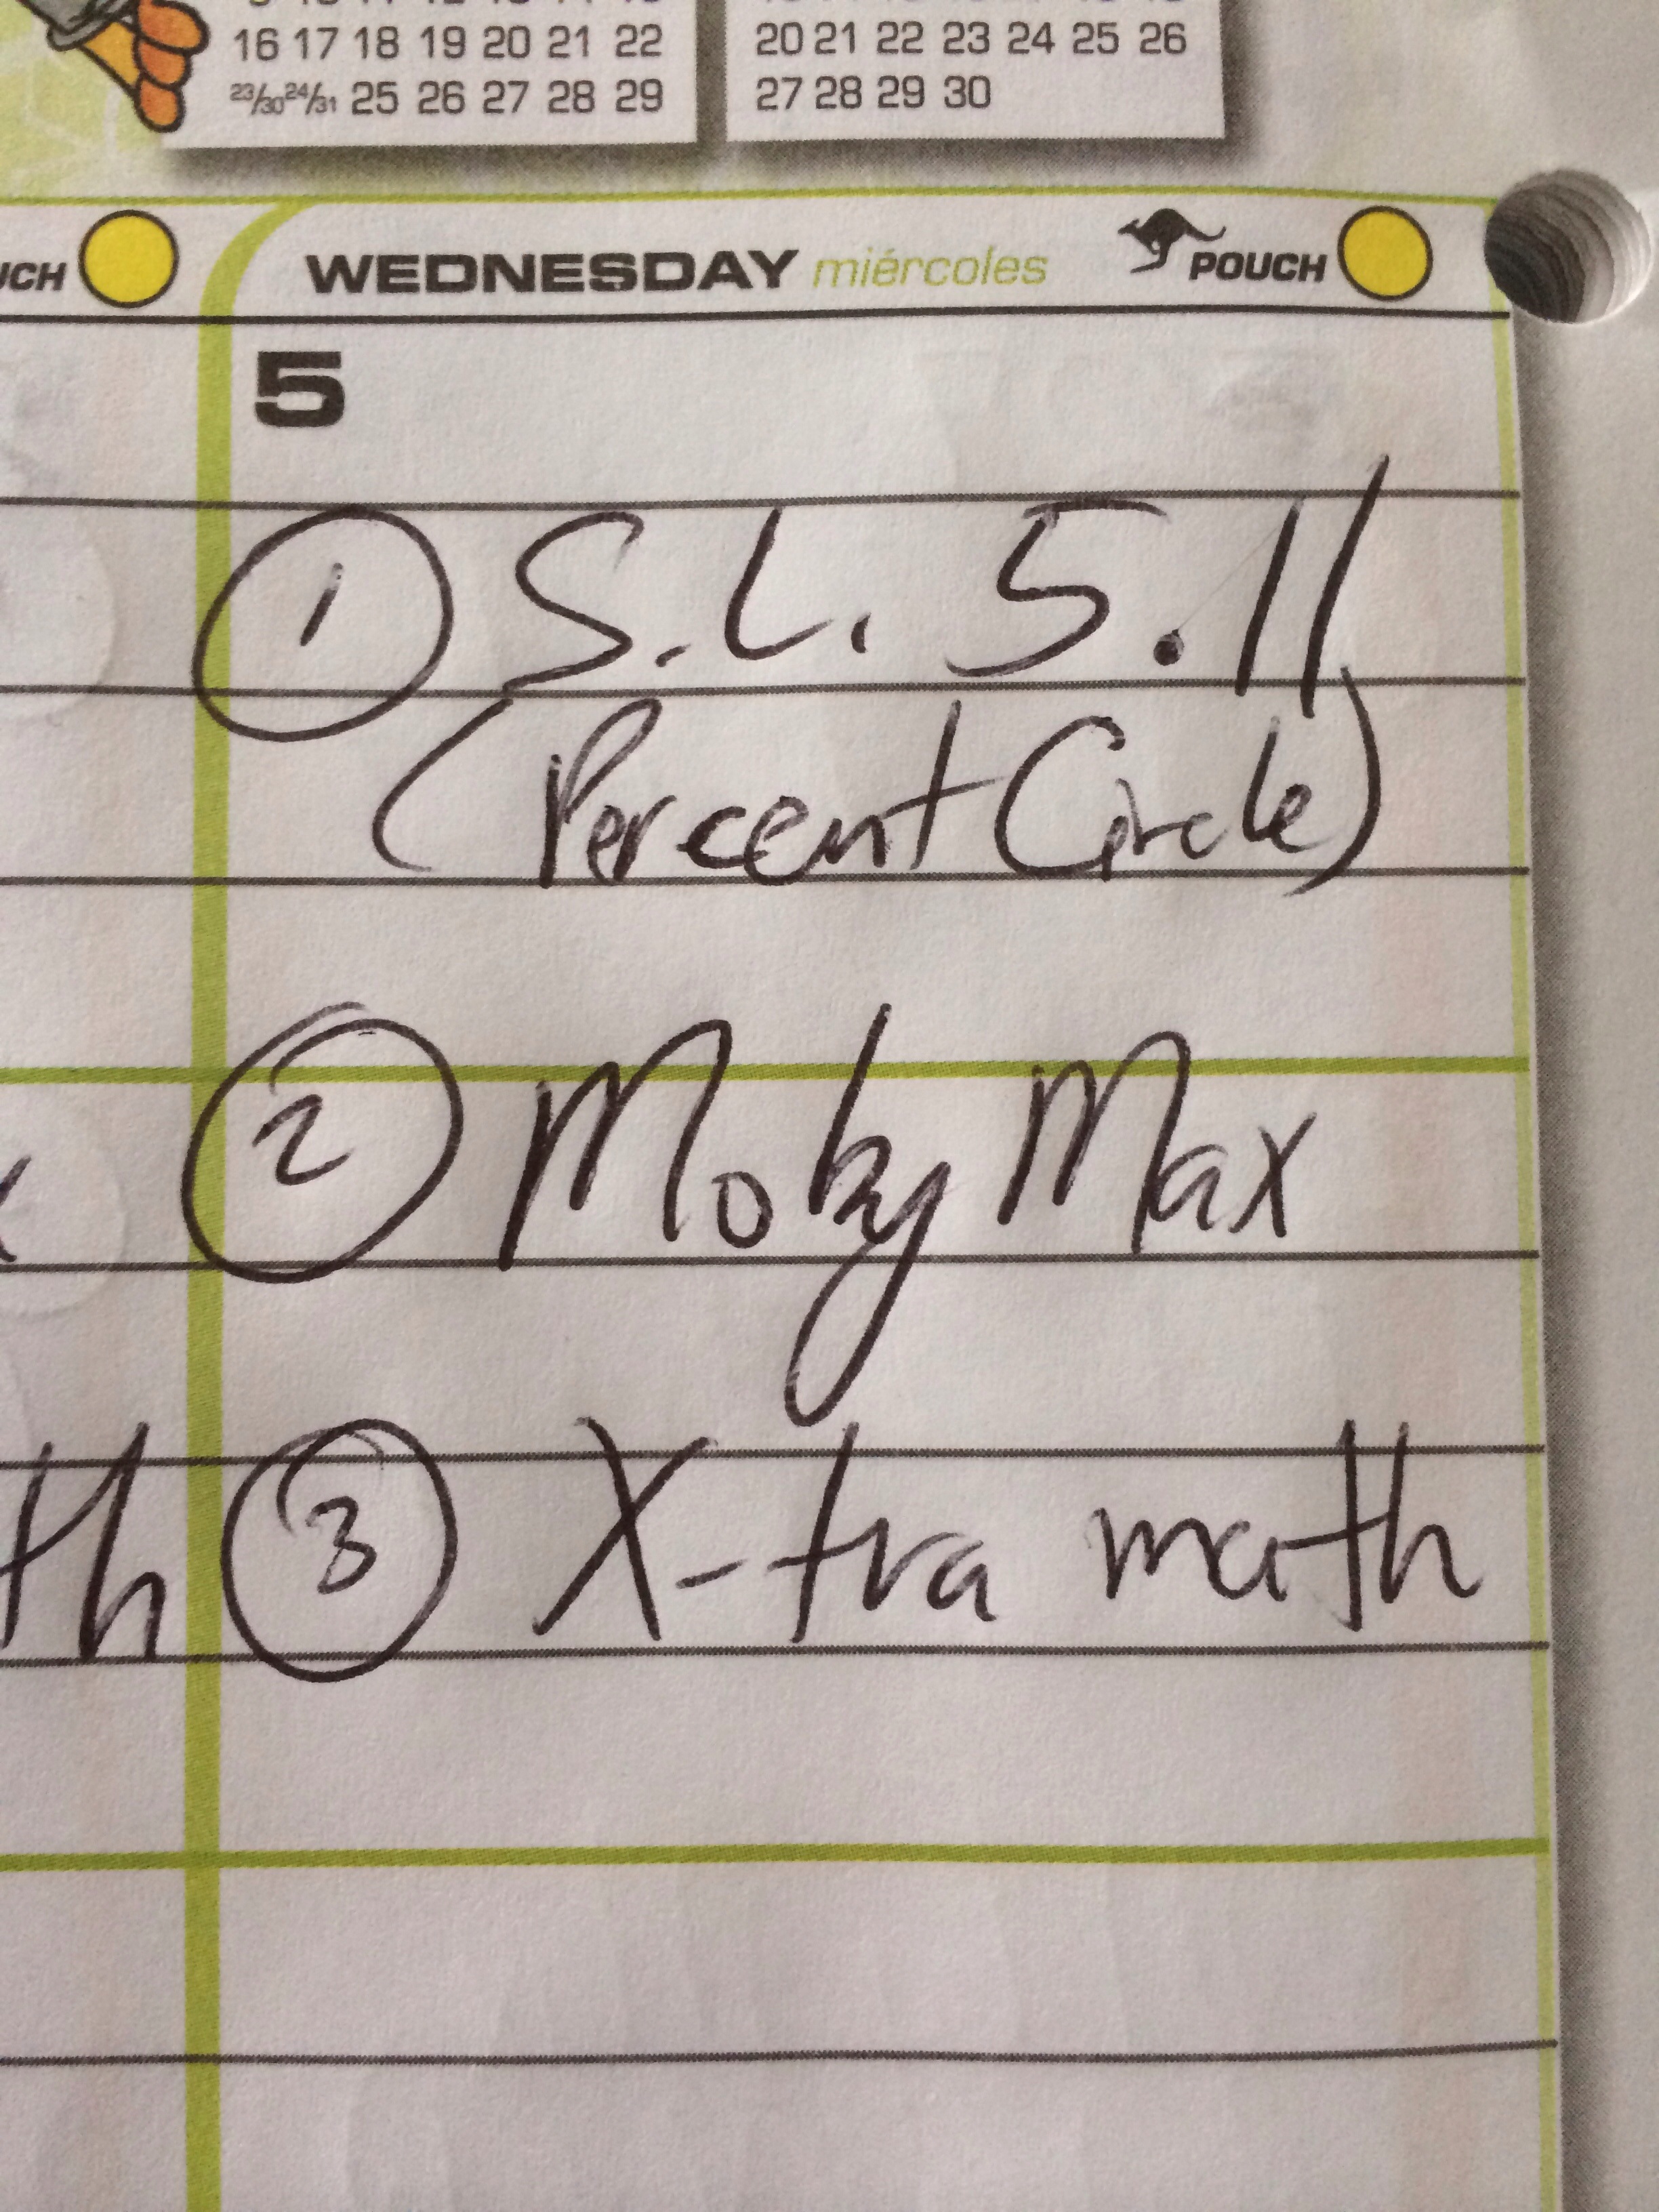 16 17 18 19 20 21 22
23/30 24/31 25 26 27 28 29
20 21 22 23 24 25 26
27 28 29 30
UCH
WEDNESDAY miércoles POUCH
5
1 S.L. 5.11
(Percent Circle)
2 Moby Max
th
3 X-tra math